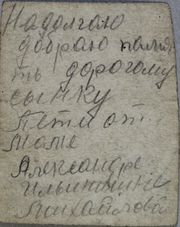 На долгаю
добраю памя
ть дорогому
сынку
Пети от
Моме
Александре
Ильиничне
Михайловой